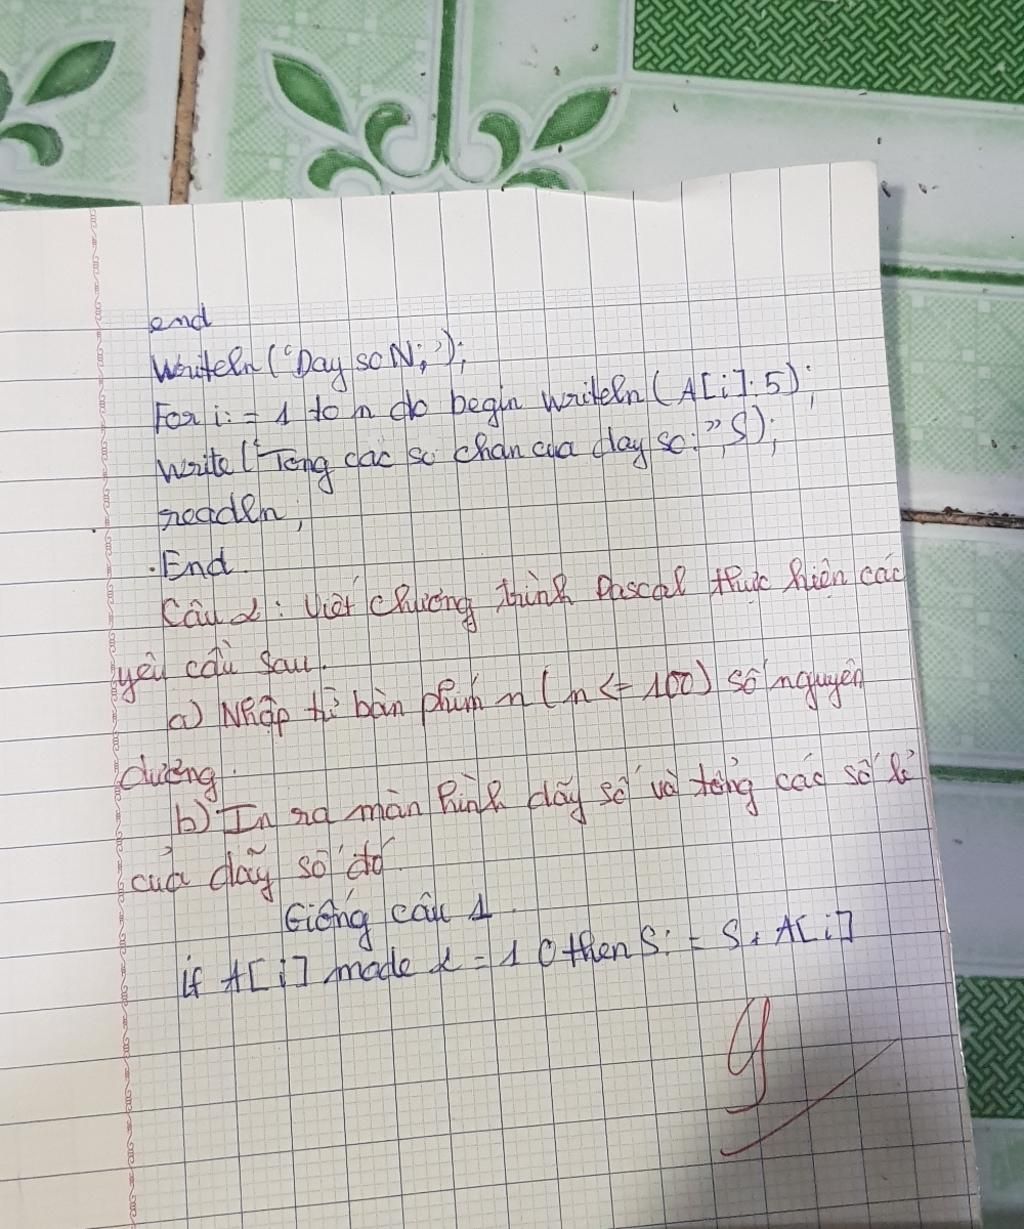 end
Writeln (“Day so N; ’);
For i: = 1 to n do begin writeln ( A[i]:5);
Write (“Tong cac so chan cua day so:”,S);
readln;
.End.
Câu 2: Viết chương trình Pascal thực hiện các
yêu cầu sau.
a) Nhập từ bàn phím n ( n <= 100) số nguyên
dương.
b) In ra màn hình dãy số và tổng các số lẻ
của dãy số đó
Giống câu 1.
if A[i] mode 2 = 1 0 then S: = S + A[i]
9